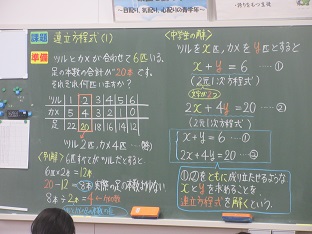 課題 連立方程式(1)
準備 ツルとカメが合わせて6匹いる。
足の本数の合計が"20本"です。
それぞれ何匹いますか?
ツル 1 2 3 4 5 6
カメ 5 4 3 2 1 0
足 22 20 18 16 14 12
ツル2匹,カメ4匹
〈別解〉6匹すべてツルだとすると、
6匹×2本=12本
20-12=8本
8本÷2本=4
〈中学生の解〉
ツルをx匹,カメをy匹とすると
x+y=6 ①
(2元1次方程式)
文字が2つ
2x+4y=20 ②
(2元1次方程式)
x+y=6 ①
2x+4y=20 ②
①,②をともに成り立たせるような
xとyを求めることを、
連立方程式を解くという。